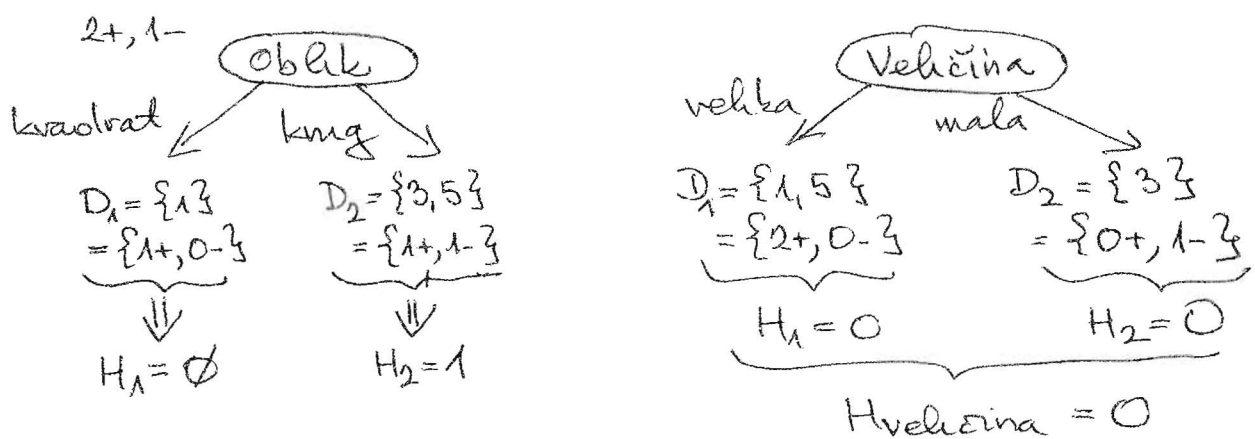 2+, 1-
Oblik
kvadrat
krug
D₁ = {1}
= {1+, 0-}
H₁ = Ø
D₂ = {3, 5}
= {1+, 1-}
H₂ = 1
Veličina
velika
mala
D₁ = {1, 5}
= {2+, 0-}
H₁ = 0
D₂ = {3}
= {0+, 1-}
H₂ = 0
Hveličina = 0